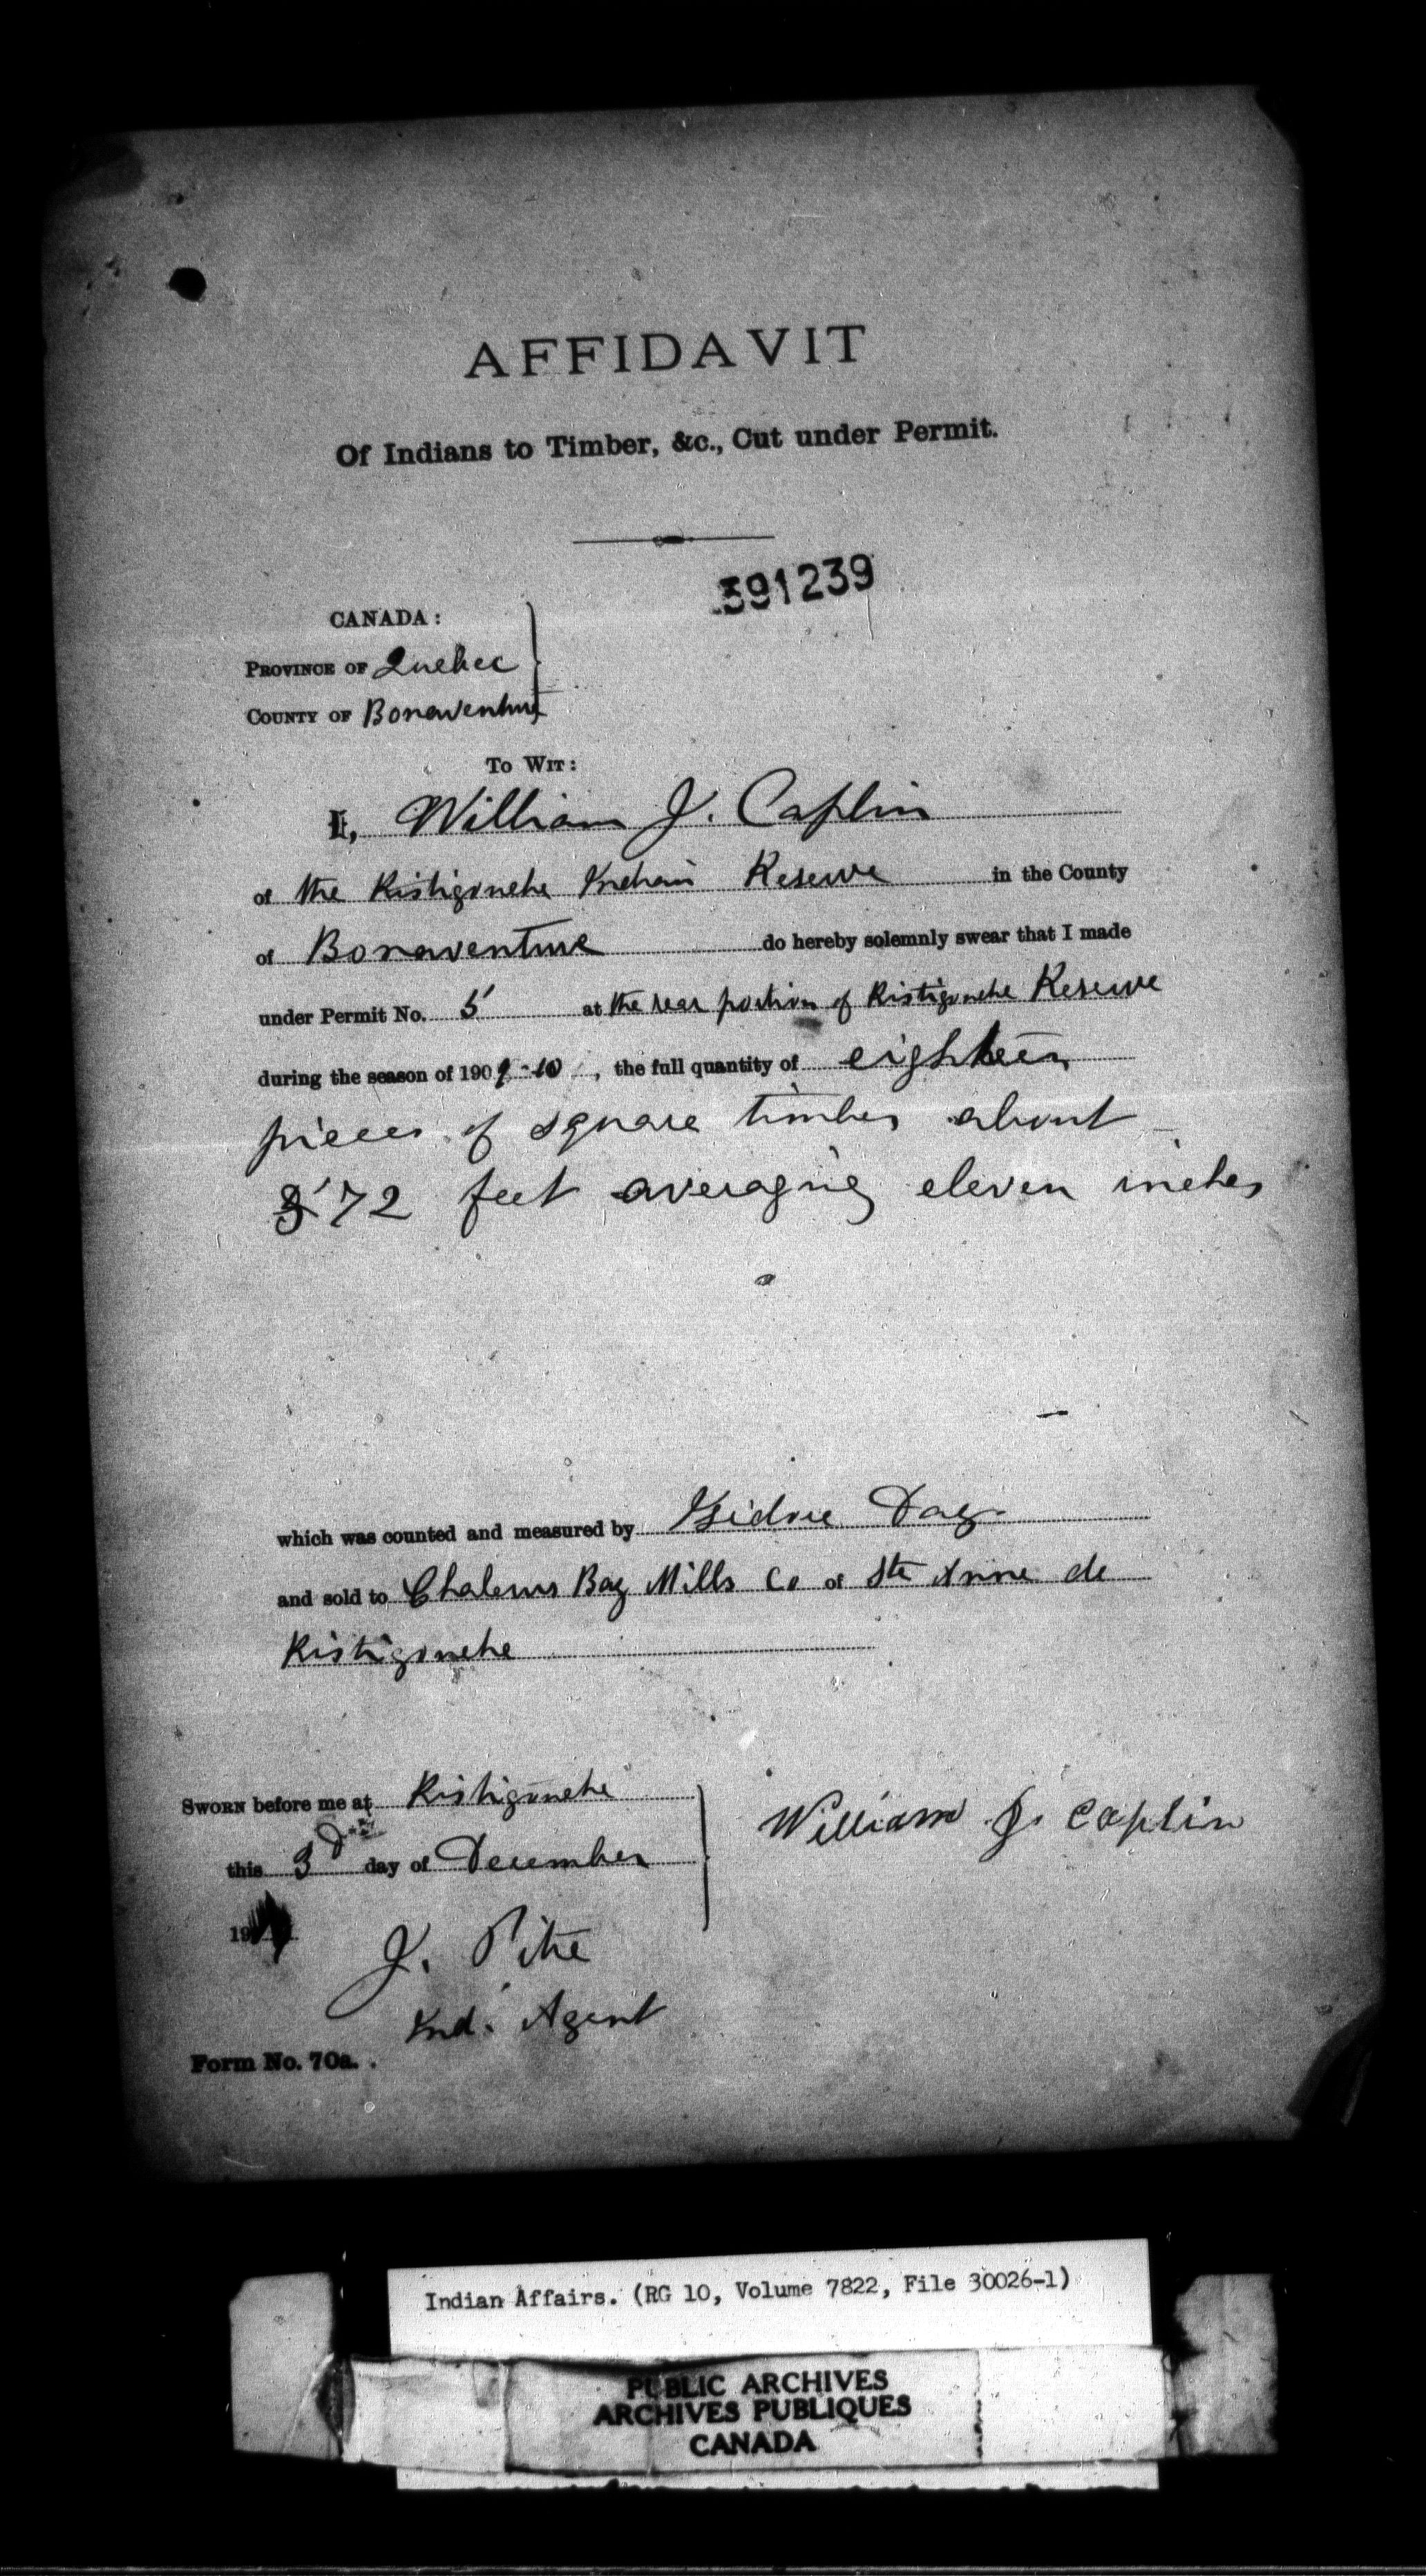 AFFIDAVIT
Of Indians to Timber, &c., Cut under Permit.
391239
CANADA:
PROVINCE OF Quebec
COUNTY OF Bonaventure
TO WIT:
I, William J. Caplin
of the Ristigouche Indian Reserve in the County
of Bonaventure do hereby solemnly swear that I made
under Permit No. 5 at the rear portion of Ristigouche Reserve
during the season of 1909-10, the full quantity of eighteen
pieces of square timber about
572 feet averaging eleven inches
which was counted and measured by Isidore Dag
and sold to Chaleurs Bay Mills Co of Ste Anne de
Ristigouche
SWORN before me at Ristigouche
this 3d day of December
19
William J. Caplin
J. Pitre
Ind. Agent
Form No. 70a.
Indian Affairs. (RG 10, Volume 7822, File 30026-1)
PUBLIC ARCHIVES
ARCHIVES PUBLIQUES
CANADA